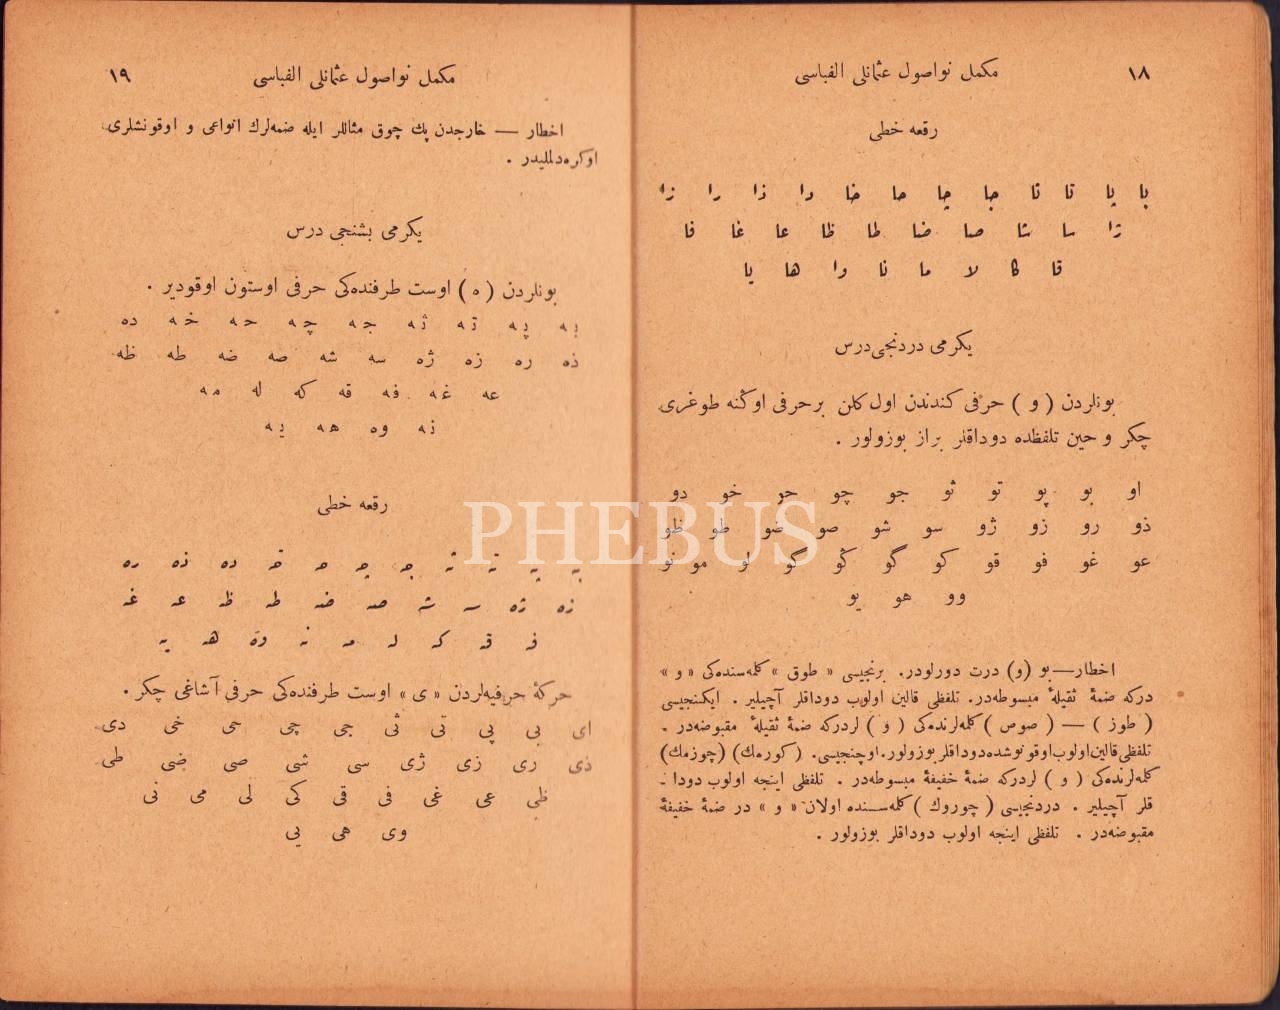 ١٨
مكمل نواصول عثمانلی الفباسی
رقعه خطی
با پا تا ثا جا چا حا خا دا ذا را زا
ژا سا شا صا ضا طا ظا عا غا فا
قا كا لا ما نا وا ها يا
يكرمی دردنجی درس
بونلردن ( و ) حرفی كندندن اول كلن بر حرفی اوكنه طوغری
چكر و حين تلفظده دوداقلر براز بوزولور .
او بو پو تو ثو جو چو حو خو دو
ذو رو زو ژو سو شو صو ضو طو ظو
عو غو فو قو كو گو ڭو گو لو مو نو
وو هو يو
اخطار — بو (و) درت دورلودر. برنجيسی « طوق » كلمه‌سنده‌كی « و »
دركه ضمۀ ثقيلۀ مبسوطه‌در. تلفظی قالين اولوب دوداقلر آچيلير . ايكنجيسی
( طوز ) — ( صوص ) كلمه‌لرنده‌كی ( و ) لردركه ضمۀ ثقيلۀ مقبوضه‌در .
تلفظی قالين اولوب اوقونوشده دوداقلر بوزولور. اوچنجيسی. ( كورمك) (چوزمك)
كلمه‌لرنده‌كی ( و ) لردركه ضمۀ خفيفۀ مبسوطه‌در . تلفظی اينجه اولوب دودا ـ
قلر آچيلير . دردنجيسی ( چوروك ) كلمه‌سنده اولان « و » در ضمۀ خفيفۀ
مقبوضه‌در . تلفظی اينجه اولوب دوداقلر بوزولور .
مكمل نواصول عثمانلی الفباسی
١٩
اخطار — خارجدن پك چوق مثاللر ايله ضمه‌لرك انواعی و اوقونشلری
اوكره‌دلمليدر .
يكرمی بشنجی درس
بونلردن ( ه ) اوست طرفنده‌كی حرفی اوستون اوقودير .
به په ته ثه جه چه حه خه ده
ذه ره زه ژه سه شه صه ضه طه ظه
عه غه فه قه كه له مه
نه وه هه يه
رقعه خطی
به په ته ثه جه چه حه خه ده ذه ره
زه ژه سه شه صه ضه طه ظه عه غه
فه قه كه له مه نه وه هه يه
حركۀ حرفيه‌لردن « ی » اوست طرفنده‌كی حرفی آشاغی چكر .
ای بی پی تی ثی جی چی حی خی دی
ذی ری زی ژی سی شی صی ضی طی
ظی عی غی فی قی كی لی می نی
وی هی يی
PHEBUS